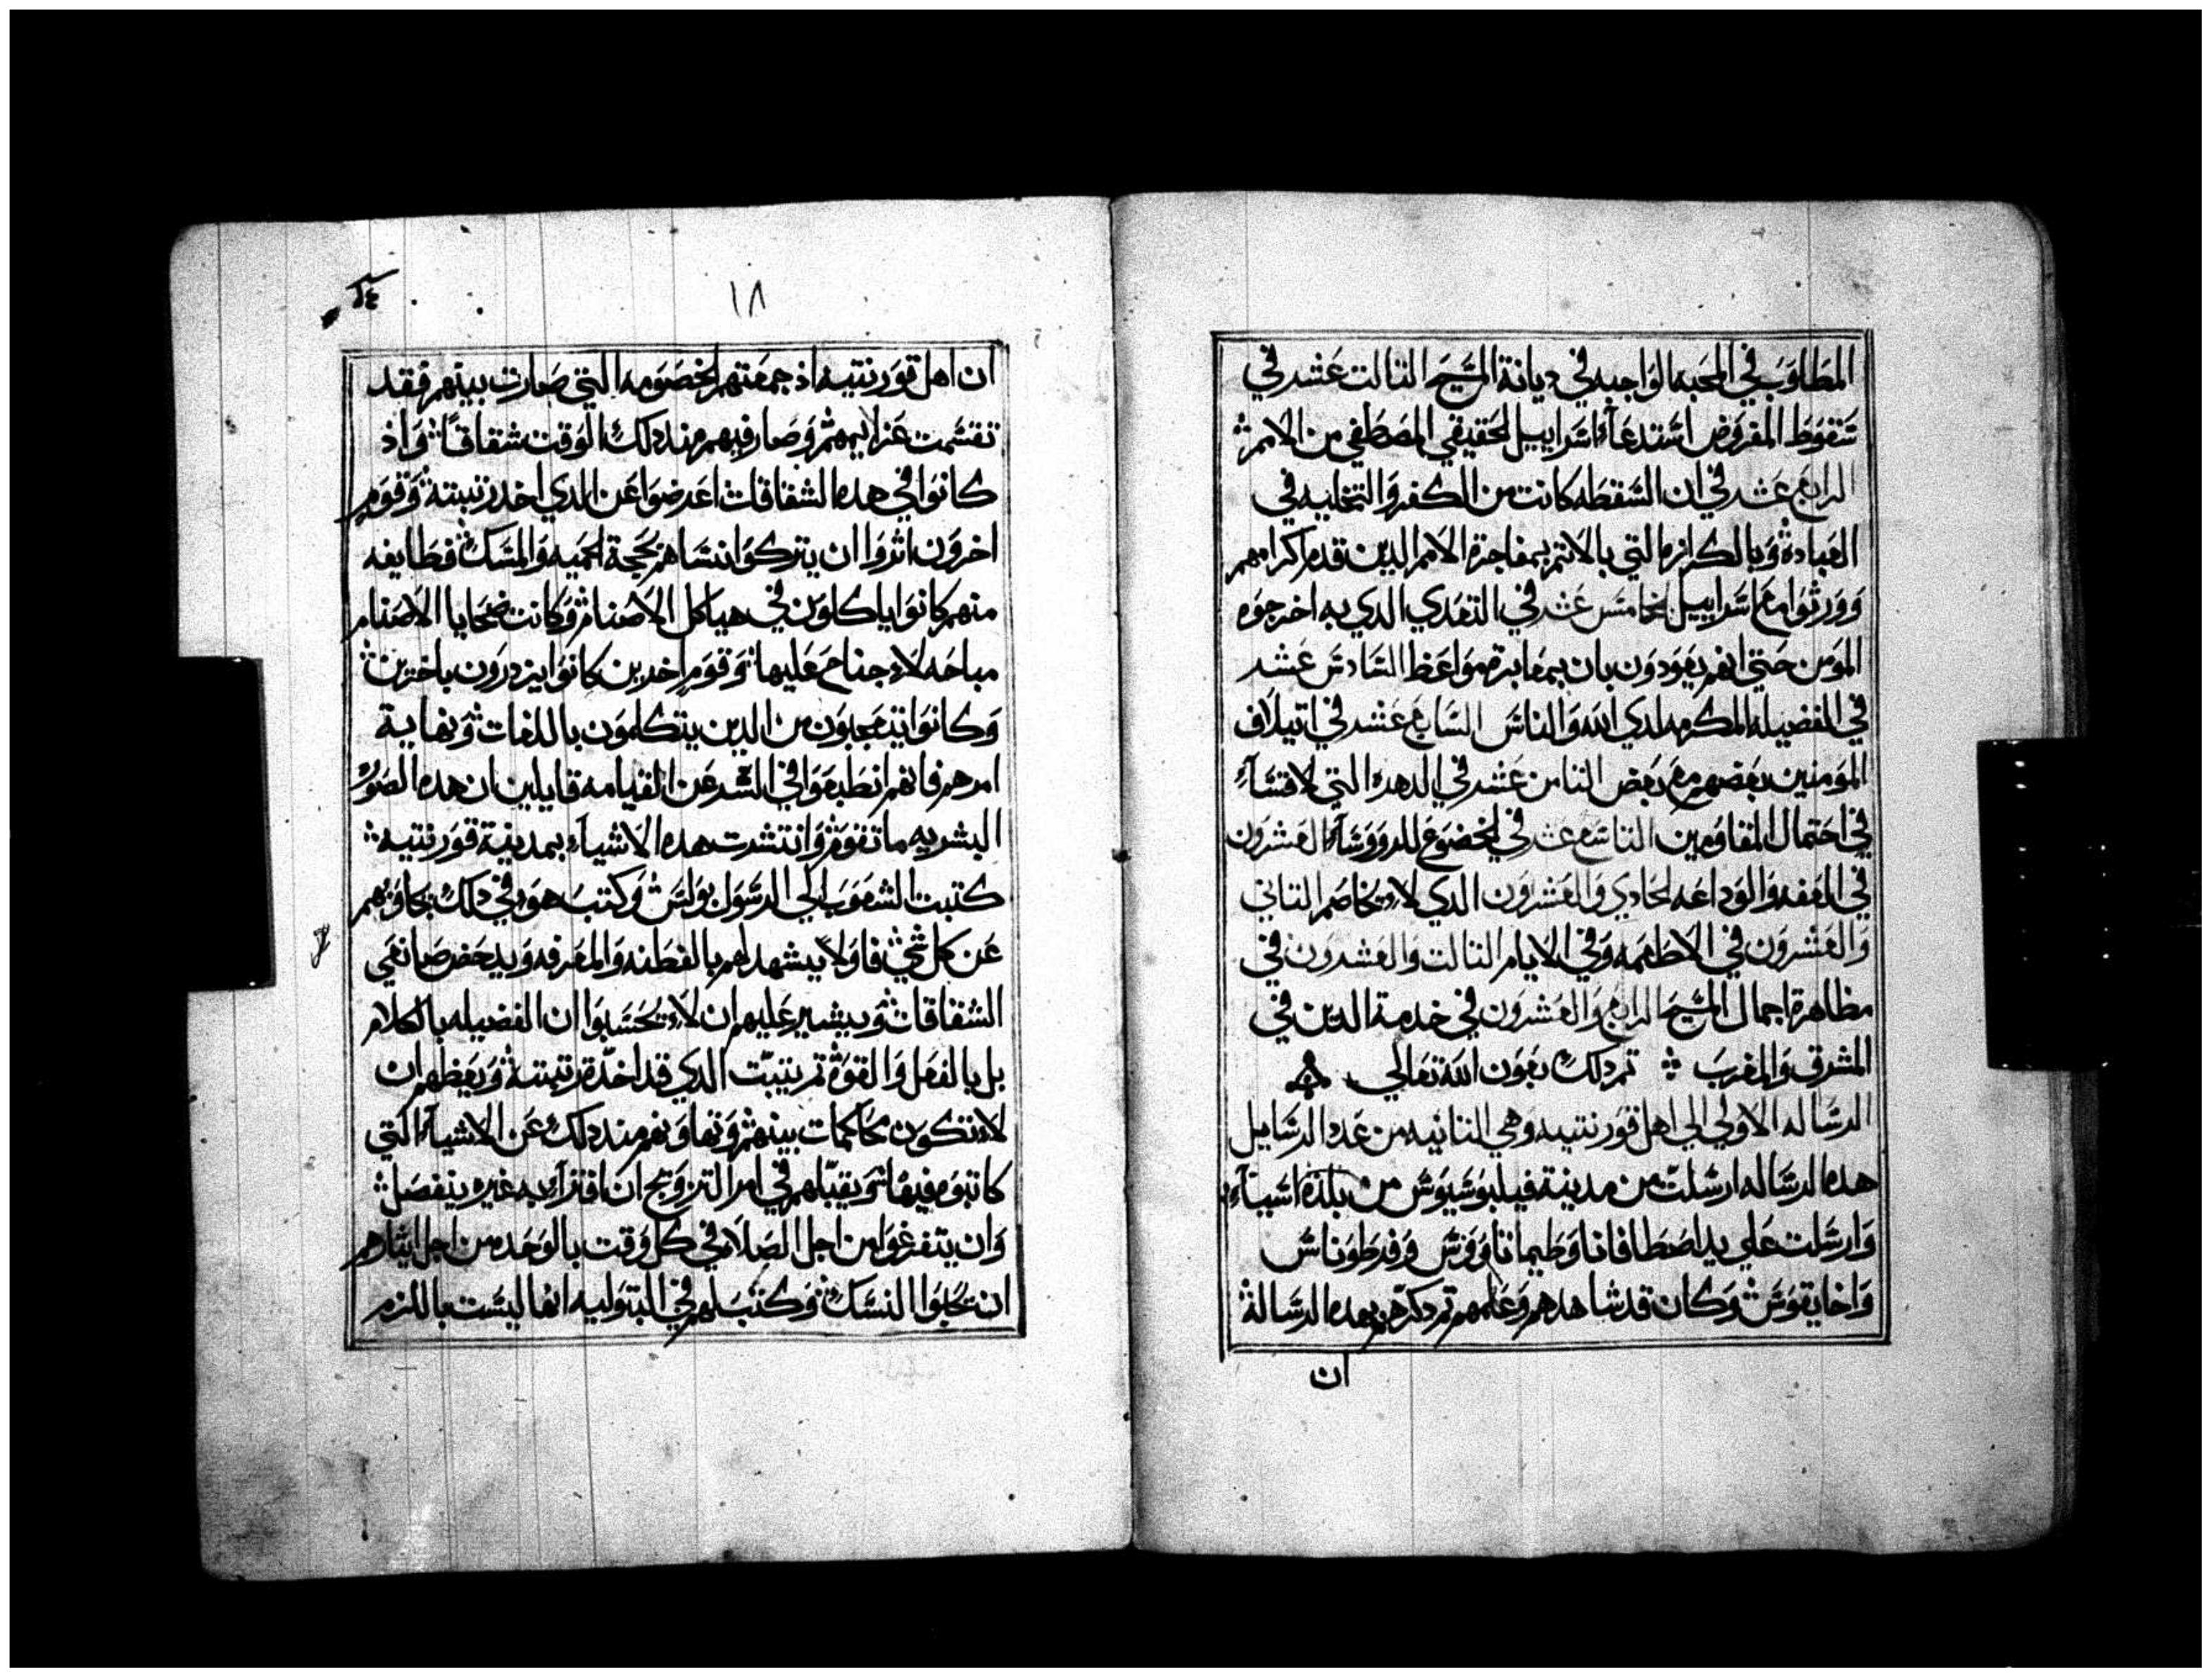 المطلوب في المحبه الواجبه في ديانة المسيح الثالت عشر في
سقوط المفروض استدعآء اسراييل الحقيقي المصطفي من الامم
الرابع عشر في ان السقطه كانت من الكفر والتخليه في
العباده وبالكرازه التي بالاتم بمفاجزة الامم الدين تقدم اكرامهم
وورثوا مع اسراييل الخامس عشر في التعدي الدي به اخرجوه
المومن حتي انهم يعودون بان بمغايرة مواعظ السادس عشر
في الفضيله المكرمه لدي الله والناس السابع عشر في اتيلاف
المومنين بعضهم مع بعض التامن عشر في الدهده التي لاقتسآء
في احتمال المقاومين التاسع عشر في الخضوع للروسآء العشرون
في العفه والوداعه الحادي والعشرون الدي لا يخاصم التاني
والعشرون في الاطعمه وفي الايام التالت والعشرون في
مظاهرة اجمال المسيح الرابع والعشرون في خدمة الدين في
المشرق والمغرب تم دلك بعون الله تعالي
الرساله الاولي الي اهل قورنتيه وهي التانيه من عدد الرسايل
هده الرساله ارسلت من مدينة فيلبوسيوس من بلدة اسيآء
وارسلت علي يد اصطافانا وطيماتاووس وفرطوناس
واخايقوس وكان قد شاهدهم وعلمهم تم دكرهم بهده الرسالة
ان
١٨
ان اهل قورنتيه اذ جمعتهم الخصومه التي صارت بينهم فقد
تقسمت عزايمهم وصار فيهم مند دلك الوقت شقاقًا واذ
كانوا في هده الشقاقات اعرضوا عن الدي اخد زنيته وقوم
اخرون اثروا ان يتركوا نساهم بحجة الحميه والمسك فطايفه
منهم كانوا ياكلون في هياكل الاصنام وكانت ضحايا الاصنام
مباحه لا جناح عليها وقوم اخرين كانوا يزدرون باخرين
وكانوا يتعجبون من الدين يتكلمون باللغات ونهاية
امرهم فانهم انطبعوا في الشر عن القيامه قايلين ان هده الصور
البشريه ما تقوم وانتشرت هده الاشيآء بمدينة قورنتيه
كتبت الشعوب الي الرسول بولس وكتب هو في دلك يجاوبهم
عن كل شي فاولاً يشهد لهم بالفطنه والمعرفه ويدحض صانعي
الشقاقات ويشير عليهم ان لا يحسبوا ان الفضيله بالكلام
بل بالفعل والقوة تم يتبت الدي قد اخد زنيته ويعظهم ان
لا تكون محاكمات بينهم وتهاونهم مند دلك عن الاشيآء التي
كاتبوه فيها ويقبلهم في امر التزويج ان افترآ به غيره ينفصل
وان يتفرغوا من اجل الصلاه في كل وقت بالوحده من اجل ايتارهم
ان تحلوا النسك وكتب لهم في البتوليه انها ليست باللزم